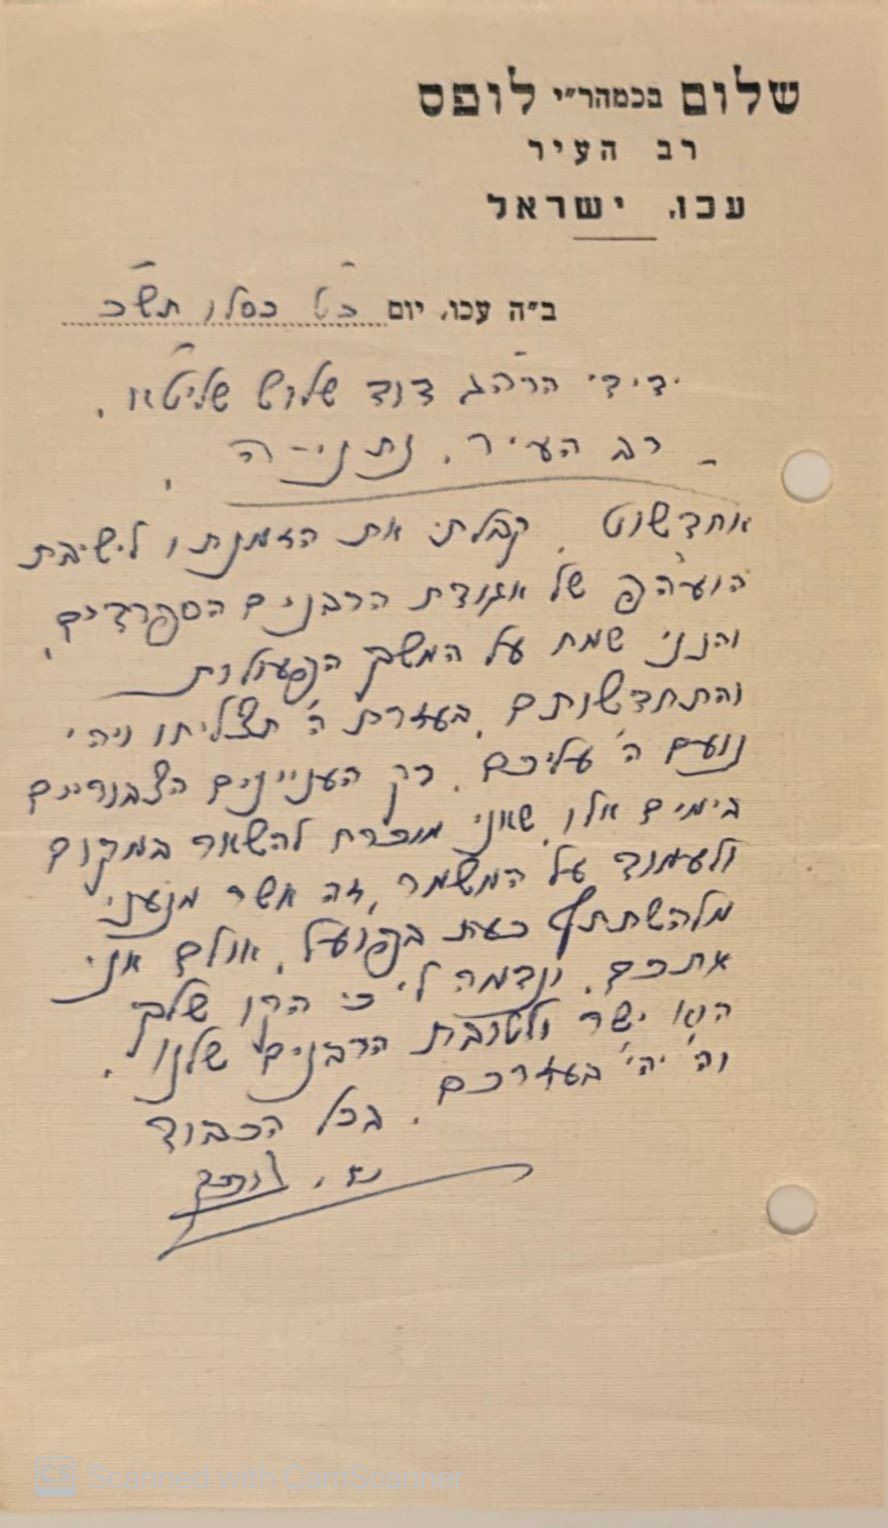 שלום בכמהר״י לופס
רב העיר
עכו, ישראל
ב״ה עכו, יום כט כסלו תשכ
ידידי הרהג דוד שלוש שליטא.
רב העיר, נתני-ה.
אוחדשוט. קבלתי את הזמנתו לישיבת
הועה״פ של אגודת הרבנים הספרדים,
והנני שמח על המשך הפעולות
והתחדשותם. בעזרת ה' תצליחו ויהי
נועם ה' עליכם. רק העניינים הצבוריים
בימים אלו שאני מוכרח להשאר במקום
ולעמוד על המשמר, זה אשר מנעני
מלהשתתף כעת בפועל, אולם אני
אתכם. ונדמה לי כי הקו שלך
הוא ישר ולטובת הרבנים שלנו.
וה' יהי בעזרכם. בכל הכבוד
ש. לופס
Scanned with CamScanner